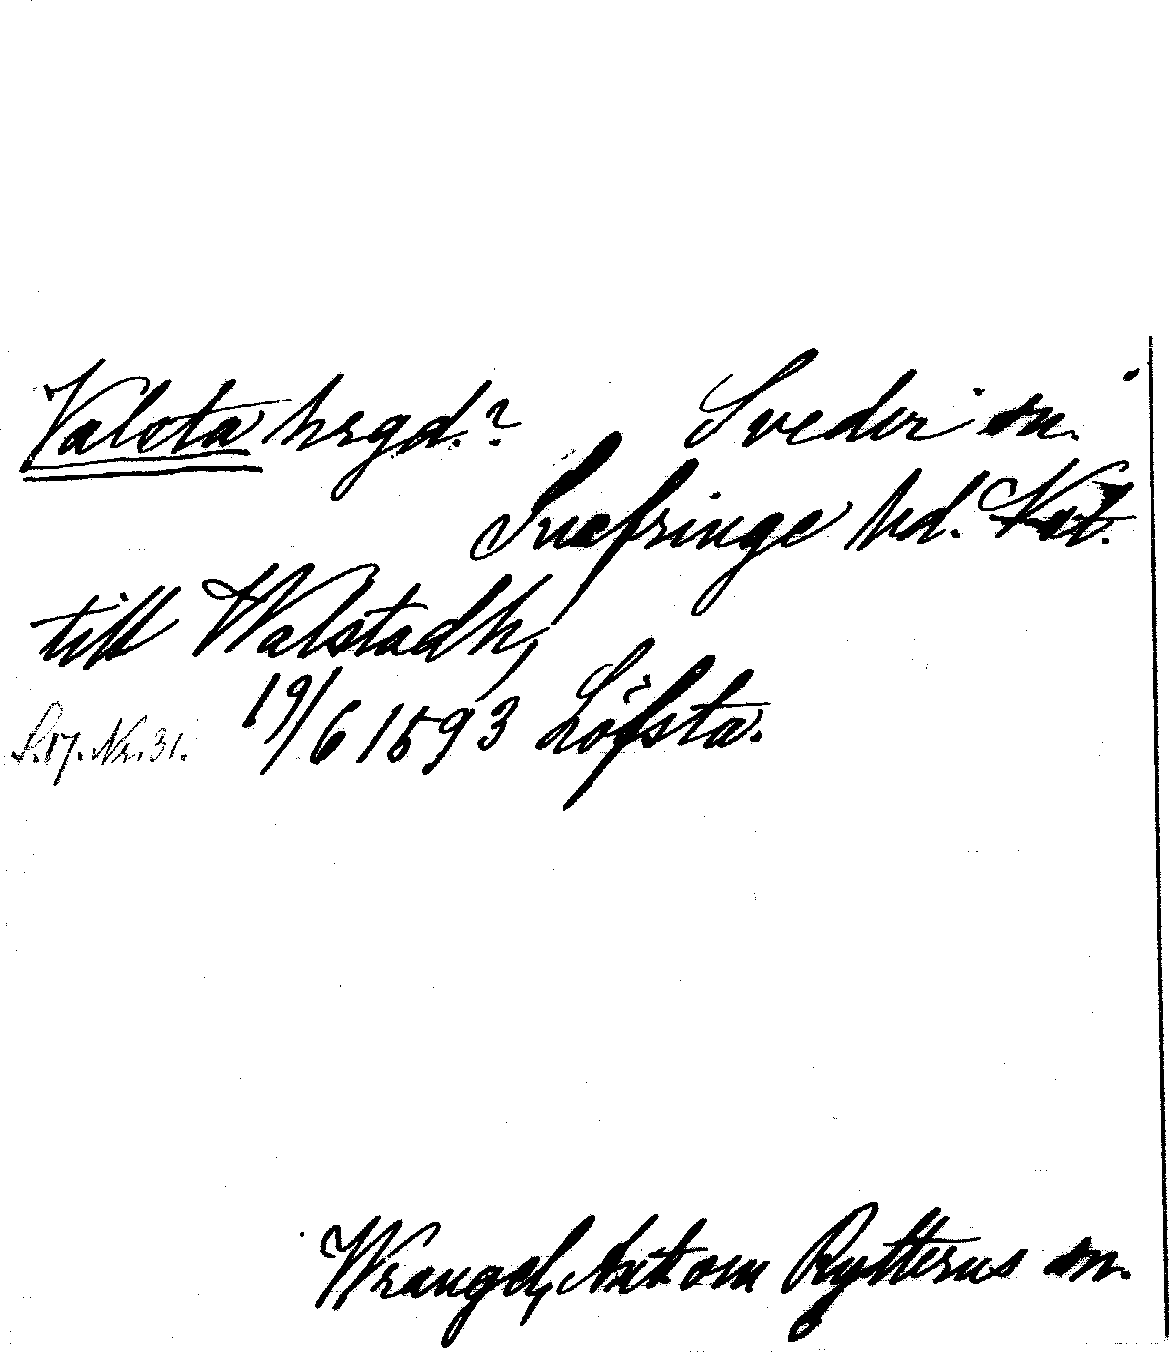 Valsta hsgd.? Svedvi sn.
Snefringe hd. Vstl.
till Walstadh,
19/6 1593 Löfsta.
S. 17. Nr. 31.
Wrangel, Ant. om Rytterns sn.